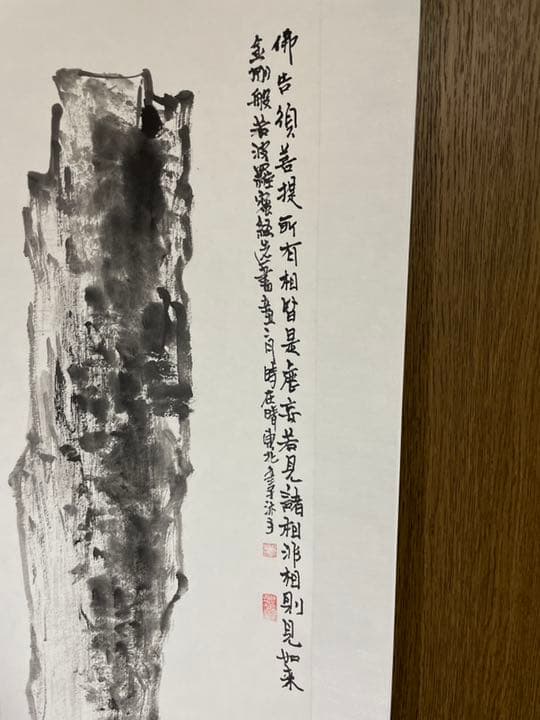 佛告須菩提所有相皆是虛妄若見諸相非相則見如来
金剛般若波羅蜜經 時在 東北